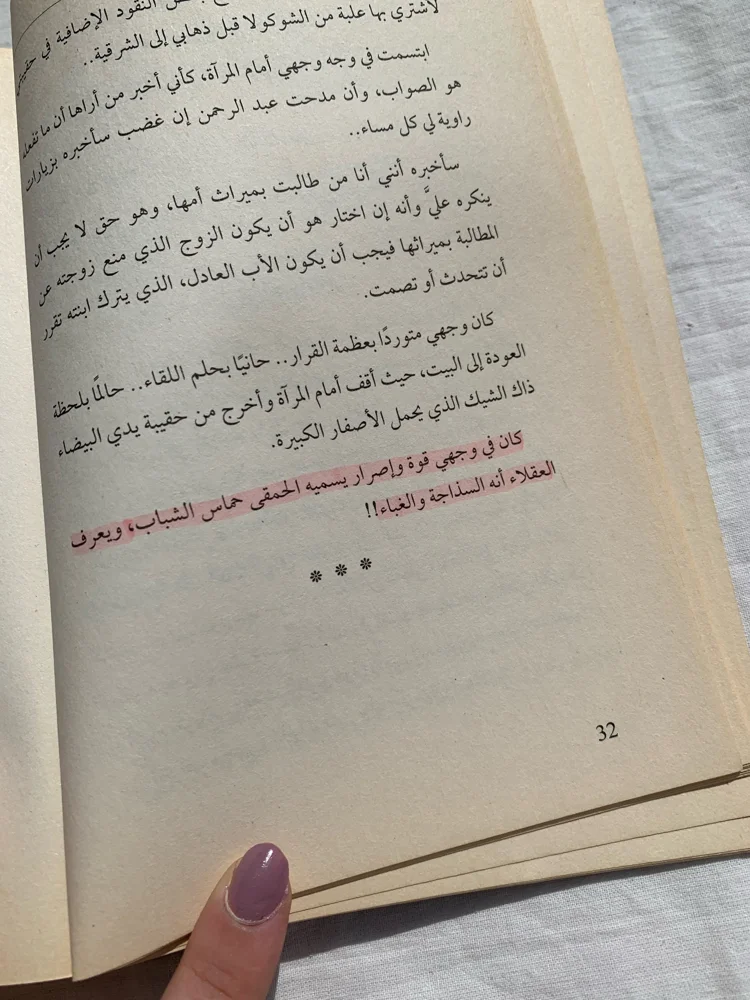 النقود الإضافية في
لأشتري بها علبة من الشوكولا قبل ذهابي إلى الشرقية..
ابتسمت في وجه وجهي أمام المرآة، كأني أخبر من أراها أن ما تفعله
هو الصواب، وأن مدحت عبد الرحمن إن غضب سأخبره بزيارات
راوية لي كل مساء..
سأخبره أنني أنا من طالبت بميراث أمها، وهو حق لا يجب أن
ينكره عليَّ وأنه إن اختار هو أن يكون الزوج الذي منع زوجته عن
المطالبة بميراثها فيجب أن يكون الأب العادل، الذي يترك ابنته تقرر
أن تتحدث أو تصمت.
كان وجهي متوردًا بعظمة القرار.. حانيًا بحلم اللقاء.. حالمًا بلحظة
العودة إلى البيت، حيث أقف أمام المرآة وأخرج من حقيبة يدي البيضاء
ذاك الشيك الذي يحمل الأصفار الكبيرة.
كان في وجهي قوة وإصرار يسميه الحمقى حماس الشباب، ويعرف
العقلاء أنه السذاجة والغباء!!
* * *
32